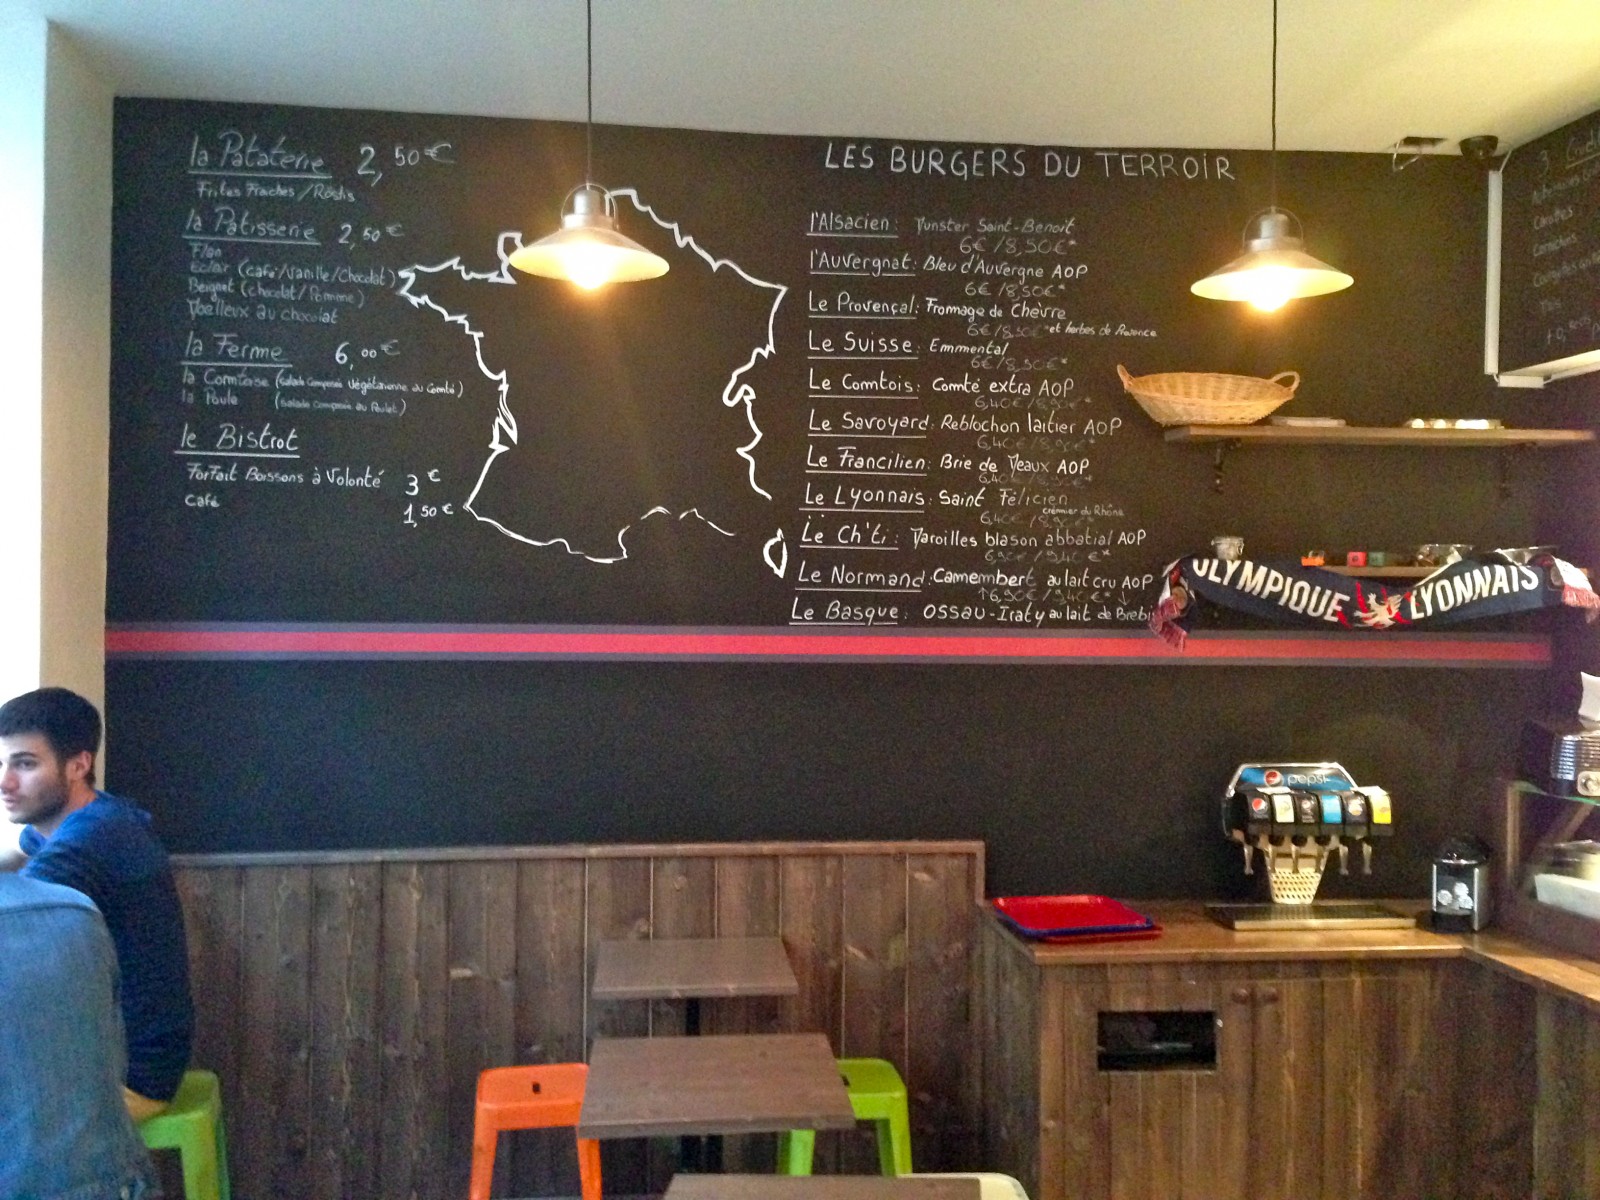 la Pataterie 2,50€
Frites Fraîches / Röstis
la Pâtisserie 2,50€
Flan
Eclair (café/Vanille/Chocolat)
Beignet (chocolat/Pomme)
Moelleux au chocolat
la Ferme 6,00€
la Comtoise (salade composée végétarienne au Comté)
la Poule (salade composée au Poulet)
le Bistrot
Forfait Boissons à Volonté 3€
Café 1,50€
LES BURGERS DU TERROIR
l'Alsacien: Munster Saint-Benoit
6€/8,50€*
l'Auvergnat: Bleu d'Auvergne AOP
6€/8,50€*
Le Provençal: Fromage de Chèvre
6€/8,50€* et herbes de Provence
Le Suisse: Emmental
6€/8,50€*
Le Comtois: Comté extra AOP
6,40€/8,90€*
Le Savoyard: Reblochon laitier AOP
6,40€/8,90€*
Le Francilien: Brie de Meaux AOP
6,40€/8,90€*
Le Lyonnais: Saint Félicien
crémier du Rhône
6,40€/8,90€*
Le Ch'ti: Maroilles blason abbatial AOP
6,90€/9,40€*
Le Normand: Camembert au lait cru AOP
↑6,90€/9,40€*↓
Le Basque: Ossau-Iraty au lait de Brebi
OLYMPIQUE LYONNAIS
pepsi
3
Carottes
Cornichons